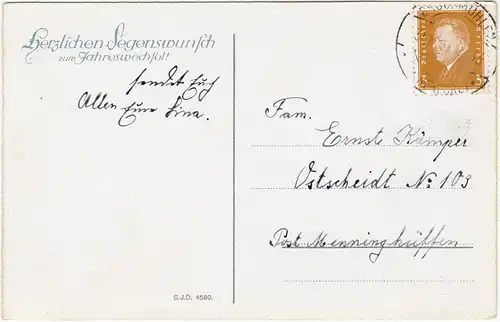 Herzlichen Segenswunsch
zum Jahreswechsel!
sendet Euch
Allen Eure Lina.
Fam.
Ernst Kämper
Ostscheidt No 103
Post Menninghüffen
S.J.D. 4580.
DEUTSCHES REICH
3 3